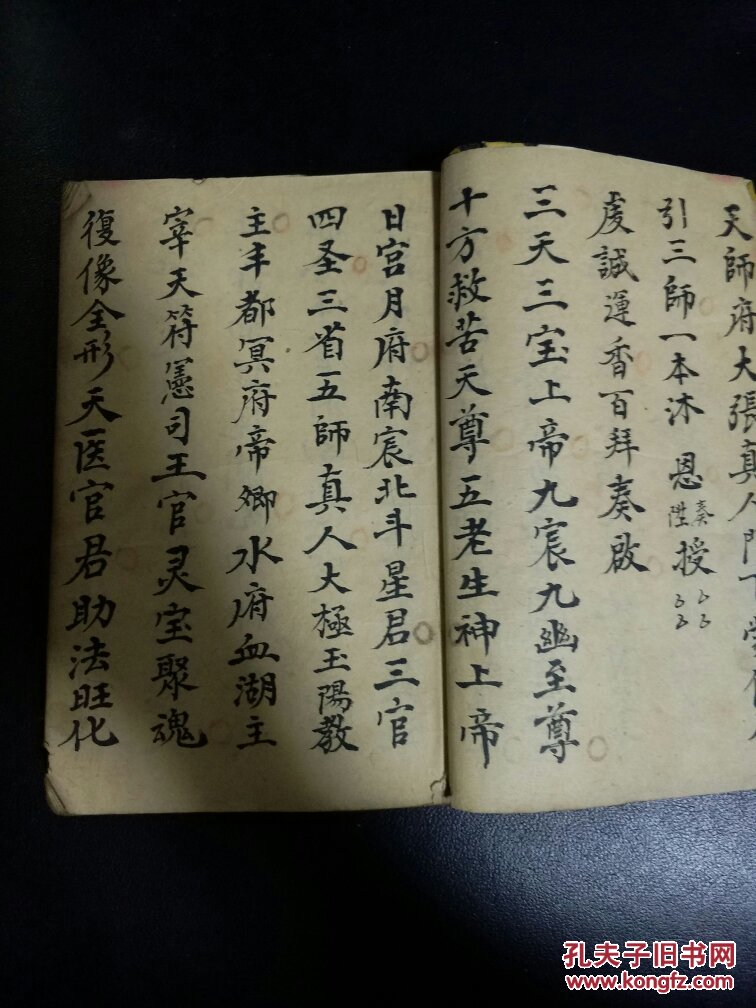 天師府大張真人門下
引三師一本沐恩奏陞授
虔誠運香百拜奏啟
三天三宝上帝九宸九幽至尊
十方救苦天尊五老生神上帝
日宫月府南宸北斗星君三官
四圣三省五師真人大極玉陽教
主丰都冥府帝卿水府血湖主
宰天符憲司王官灵宝聚魂
復像全形天医官君助法旺化
孔夫子旧书网
www.kongfz.com